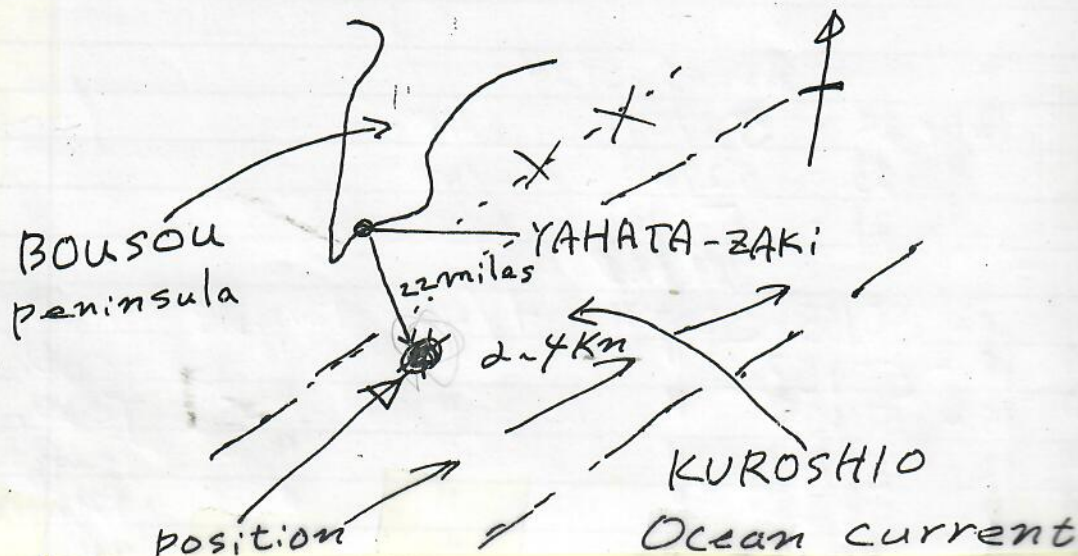 BOUSOU
peninsula
YAHATA-ZAKi
22miles
2~4Kn
KUROSHIO
Ocean current
position